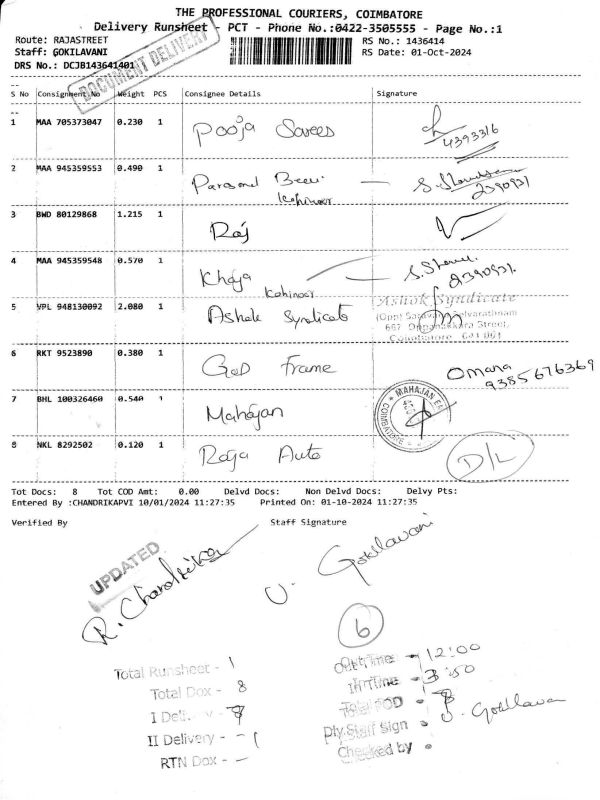 THE PROFESSIONAL COURIERS, COIMBATORE
Delivery Runsheet - PCT - Phone No.:0422-3505555 - Page No.:1
Route: RAJASTREET
RS No.: 1436414
Staff: GOKILAVANI
RS Date: 01-Oct-2024
DRS No.: DCJB143641401
DOCUMENT DELIVERY
S No Consignment No Weight PCS Consignee Details Signature
1 MAA 705373047 0.230 1 Pooja Sarees 4393316
2 MAA 945359553 0.490 1 Kohinoor 2390931
3 BWD 80129868 1.215 1 Raj
4 MAA 945359548 0.570 1 Khaja Kohinoor 2390931.
5 VPL 948130092 2.080 1 Ashok Syndicate Ashok Syndicate
(Opp) Selvarathnam
667, Oppanakkara Street,
Coimbatore - 641 001
6 RKT 9523890 0.380 1 God Frame Omana
9385676369
7 BHL 100326460 0.540 1 Mahajan MAHAJAN COIMBATORE
8 NKL 8292502 0.120 1 Raja Auto D/L
Tot Docs: 8 Tot COD Amt: 0.00 Delvd Docs: Non Delvd Docs: Delvy Pts:
Entered By :CHANDRIKAPVI 10/01/2024 11:27:35 Printed On: 01-10-2024 11:27:35
Verified By Staff Signature
UPDATED
R. Chandrika
U. Gokilavani
6
Total Runsheet - 1
Total Dox - 8
I Delivery -
II Delivery - - 1
RTN Dox - -
Out Time - 12:00
In Time - 3:50
Total POD - 8
Dly.Staff Sign - U. Gokilavani
Checked by -